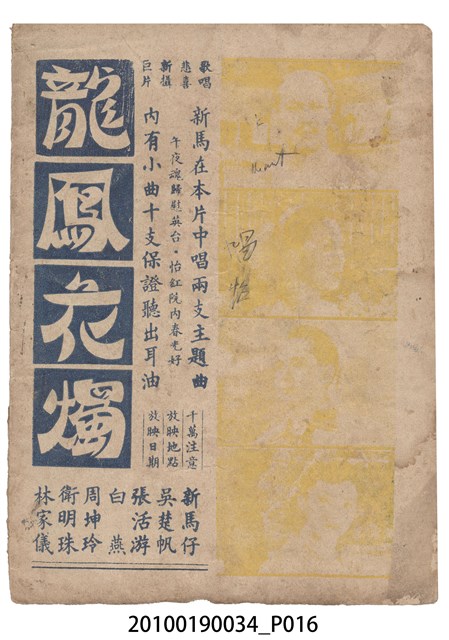 龍鳳花燭
歌唱
悲喜
新攝
巨片
新馬在本片中唱兩支主題曲
午夜魂歸慰英台·怡紅院內春光好
內有小曲十支保證聽出耳油
十萬注意
放映地點
放映日期
新馬仔
吳楚帆
張活游
白燕
周坤玲
衛明珠
林家儀
唱
20100190034_P016